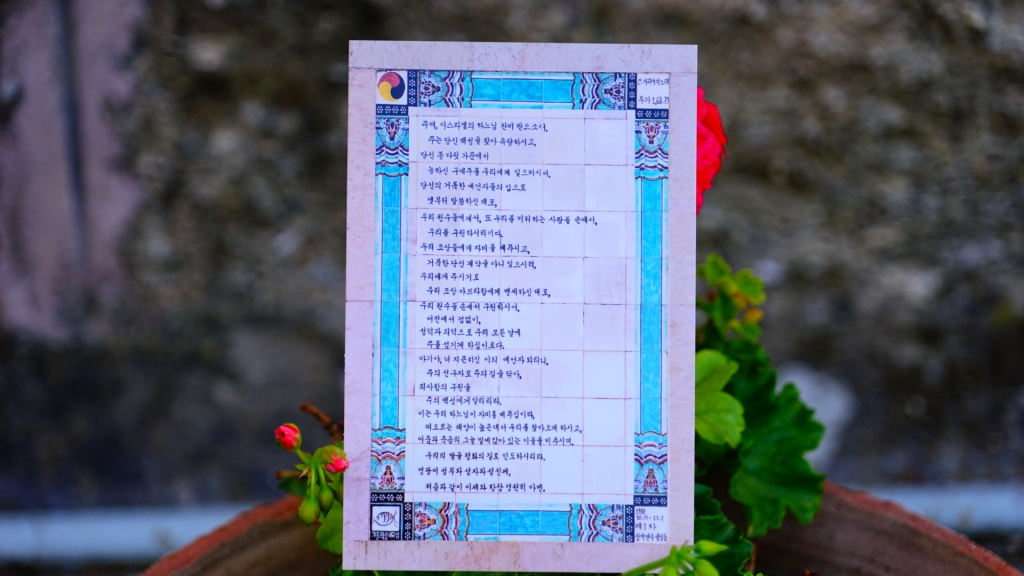 즈가리야의 노래
루가 1,68-79
주여, 이스라엘의 하느님 찬미 받으소서,
주는 당신 백성을 찾아 속량하시고,
당신 종 다윗 가문에서
능하신 구세주를 우리에게 일으키시어,
당신의 거룩한 예언자들의 입으로
옛부터 말씀하신 대로,
우리 원수들에게서, 또 우리를 미워하는 사람들 손에서,
우리를 구원하시리이다.
우리 조상들에게 자비를 베푸시고,
거룩한 당신 계약을 아니 잊으시려,
우리에게 주시기로
우리 조상 아브라함에게 맹세하신 대로,
우리 원수들 손에서 구원하시어,
어전에서 겁없이,
성덕과 의덕으로 우리 모든 날에
주를 섬기게 하심이로다.
아기야, 너 지존하신 이의 예언자 되리니,
주의 선구자로 주의 길을 닦아,
죄사함의 구원을
주의 백성에게 알리리라.
이는 우리 하느님이 자비를 베푸심이라,
떠오르는 태양이 높은데서 우리를 찾아오게 하시고,
어둠과 죽음의 그늘 밑에 앉아 있는 이들을 비추시며,
우리의 발을 평화의 길로 인도하시리라.
영광이 성부와 성자와 성신께,
처음과 같이 이제와 항상 영원히 아멘.
제1차